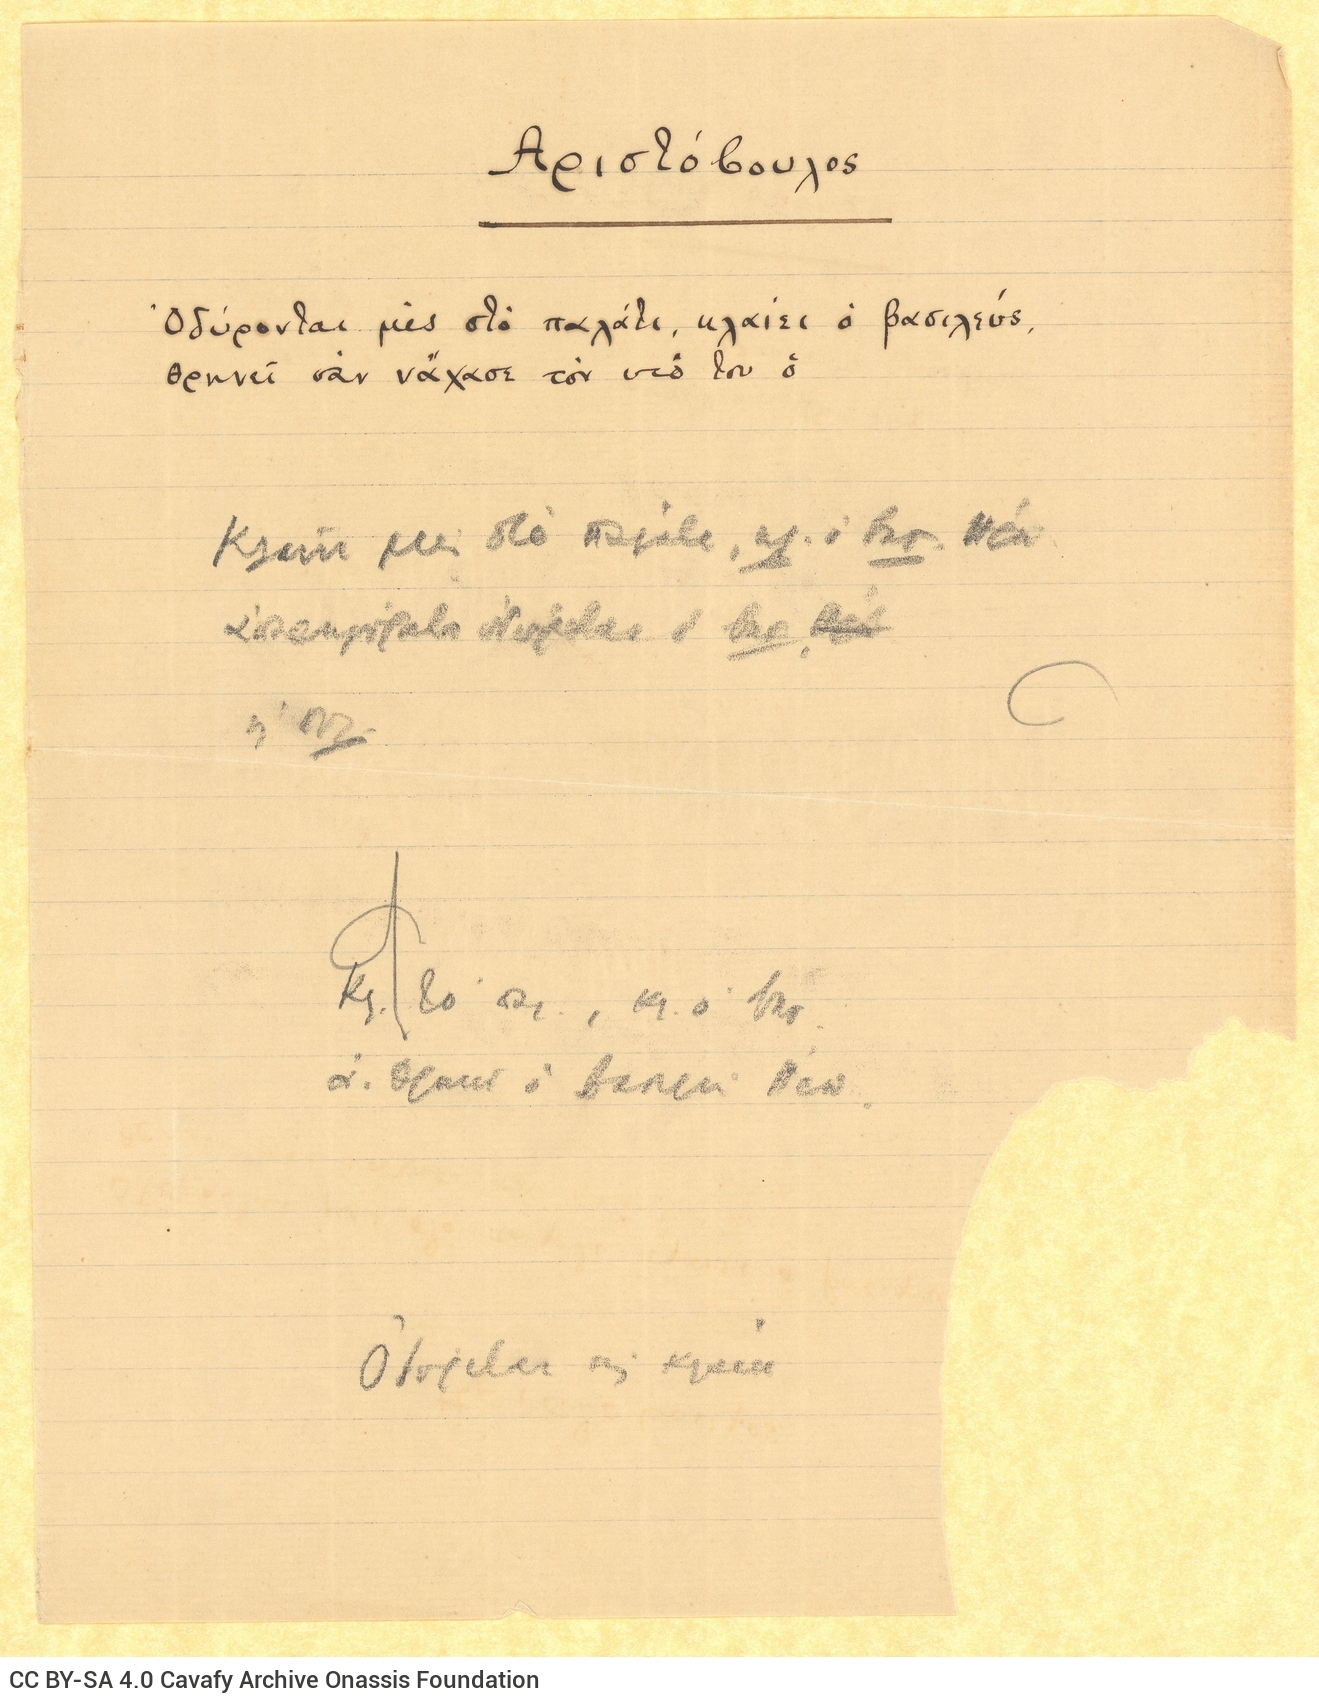 Αριστόβουλος
Ὀδύρονται μὲς στὸ παλάτι, κλαίει ὁ βασιλεύς,
θρηνεῖ σὰν νἄχασε τὸν υἱό του ὁ
Κλαῖνε μες στὸ παλάτι, κλ. ὁ βασ.
ἀπαρηγόρητα ὀδύρεται ὁ βασ,
ἡ πολ.
Κλ. το παλ., κλ. ὁ βασ.
ἀ. θρηνεῖ ὁ βασιλεὺς
Ὀδύρεται κι κλαίει
CC BY-SA 4.0 Cavafy Archive Onassis Foundation